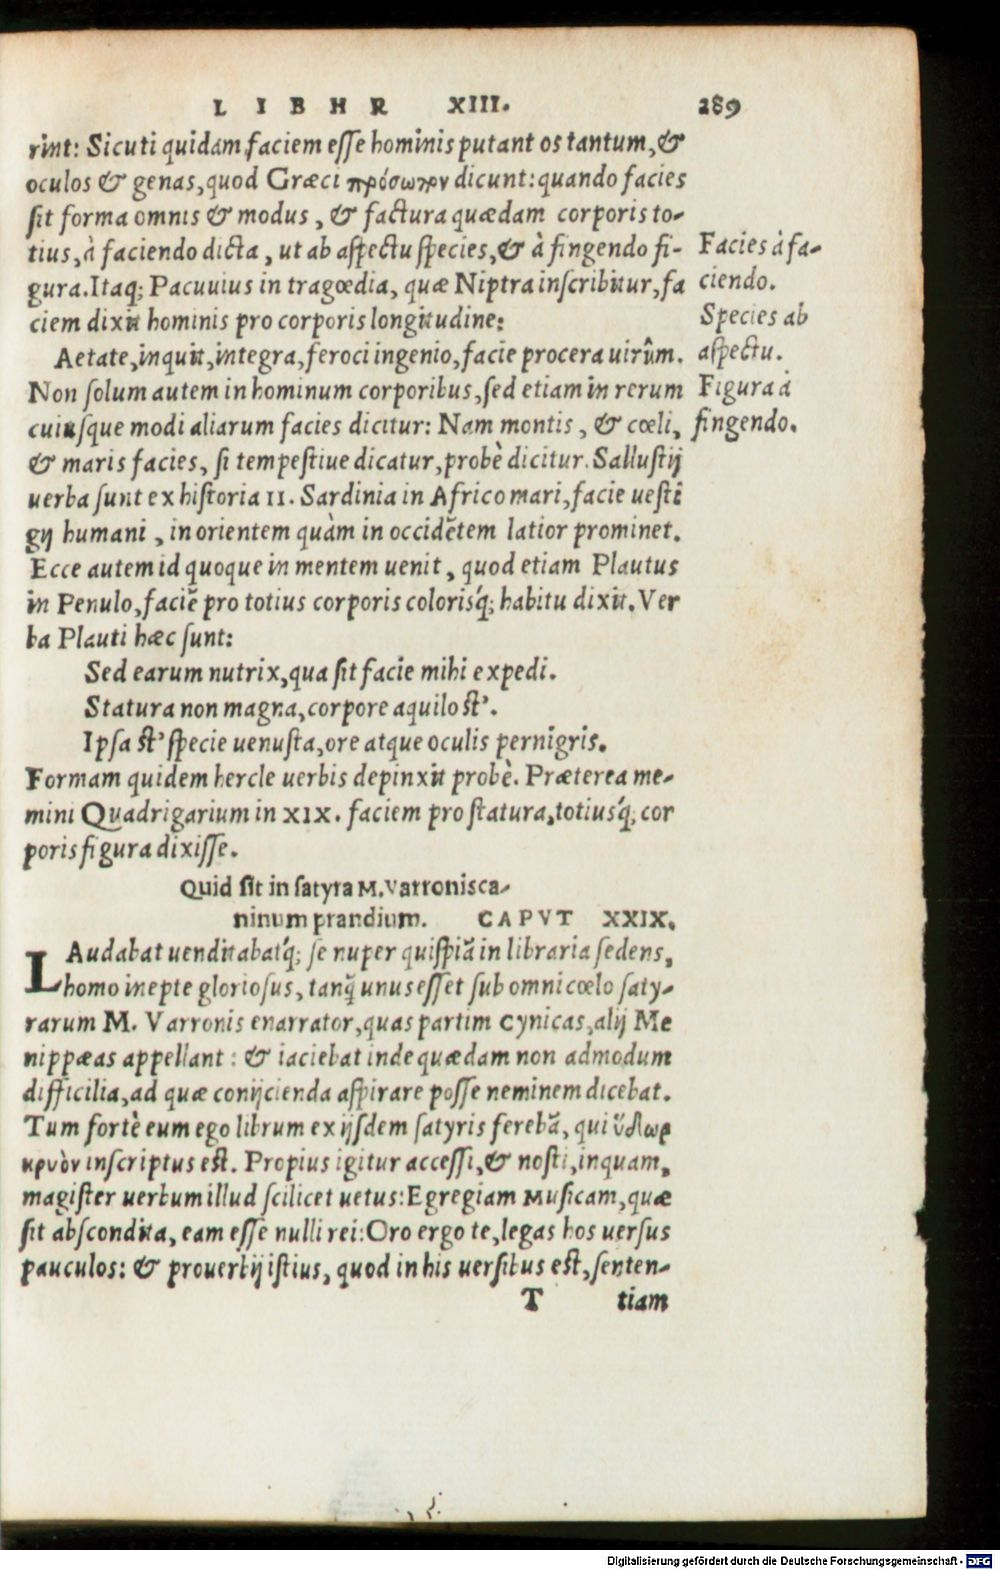 LIBHR XIII. 289
rint: Sicuti quidam faciem esse hominis putant os tantum, &
oculos & genas, quod Græci πρόσωπον dicunt: quando facies
sit forma omnis & modus, & factura quædam corporis to-
tius, à faciendo dicta, ut ab aspectu species, & à fingendo fi-
gura. Itaq; Pacuuius in tragœdia, quæ Niptra inscribitur, fa
ciem dixit hominis pro corporis longitudine:
Aetate, inquit, integra, feroci ingenio, facie procera uirûm.
Non solum autem in hominum corporibus, sed etiam in rerum
cuiusque modi aliarum facies dicitur: Nam montis, & cœli,
& maris facies, si tempestiue dicatur, probè dicitur. Sallustij
uerba sunt ex historia II. Sardinia in Africo mari, facie uesti
gij humani, in orientem quàm in occidẽtem latior prominet.
Ecce autem id quoque in mentem uenit, quod etiam Plautus
in Penulo, faciẽ pro totius corporis colorisq́; habitu dixit. Ver
ba Plauti hæc sunt:
Sed earum nutrix, qua sit facie mihi expedi.
Statura non magna, corpore aquilo st'.
Ipsa st' specie uenusta, ore atque oculis pernigris.
Formam quidem hercle uerbis depinxit probè. Præterea me-
mini Quadrigarium in XIX. faciem pro statura, totiusq́; cor
poris figura dixisse.
Facies à fa-
ciendo.
Species ab
aspectu.
Figura à
fingendo.
Quid sit in satyra M. Varronis ca-
ninum prandium. CAPVT XXIX.
LAudabat uenditabatq́; se nuper quispiã in libraria sedens,
homo inepte gloriosus, tanq̃ unus esset sub omni cœlo saty-
rarum M. Varronis enarrator, quas partim Cynicas, alij Me
nippæas appellant: & iaciebat inde quædam non admodum
difficilia, ad quæ conijcienda aspirare posse neminem dicebat.
Tum fortè eum ego librum ex ijsdem satyris ferebã, qui ὕδωρ
κρυὸν inscriptus est. Propius igitur accessi, & nosti, inquam,
magister uerbum illud scilicet uetus: Egregiam Musicam, quæ
sit abscondita, eam esse nulli rei: Oro ergo te, legas hos uersus
pauculos: & prouerbij istius, quod in his uersibus est, senten-
T tiam
Digitalisierung gefördert durch die Deutsche Forschungsgemeinschaft - DFG